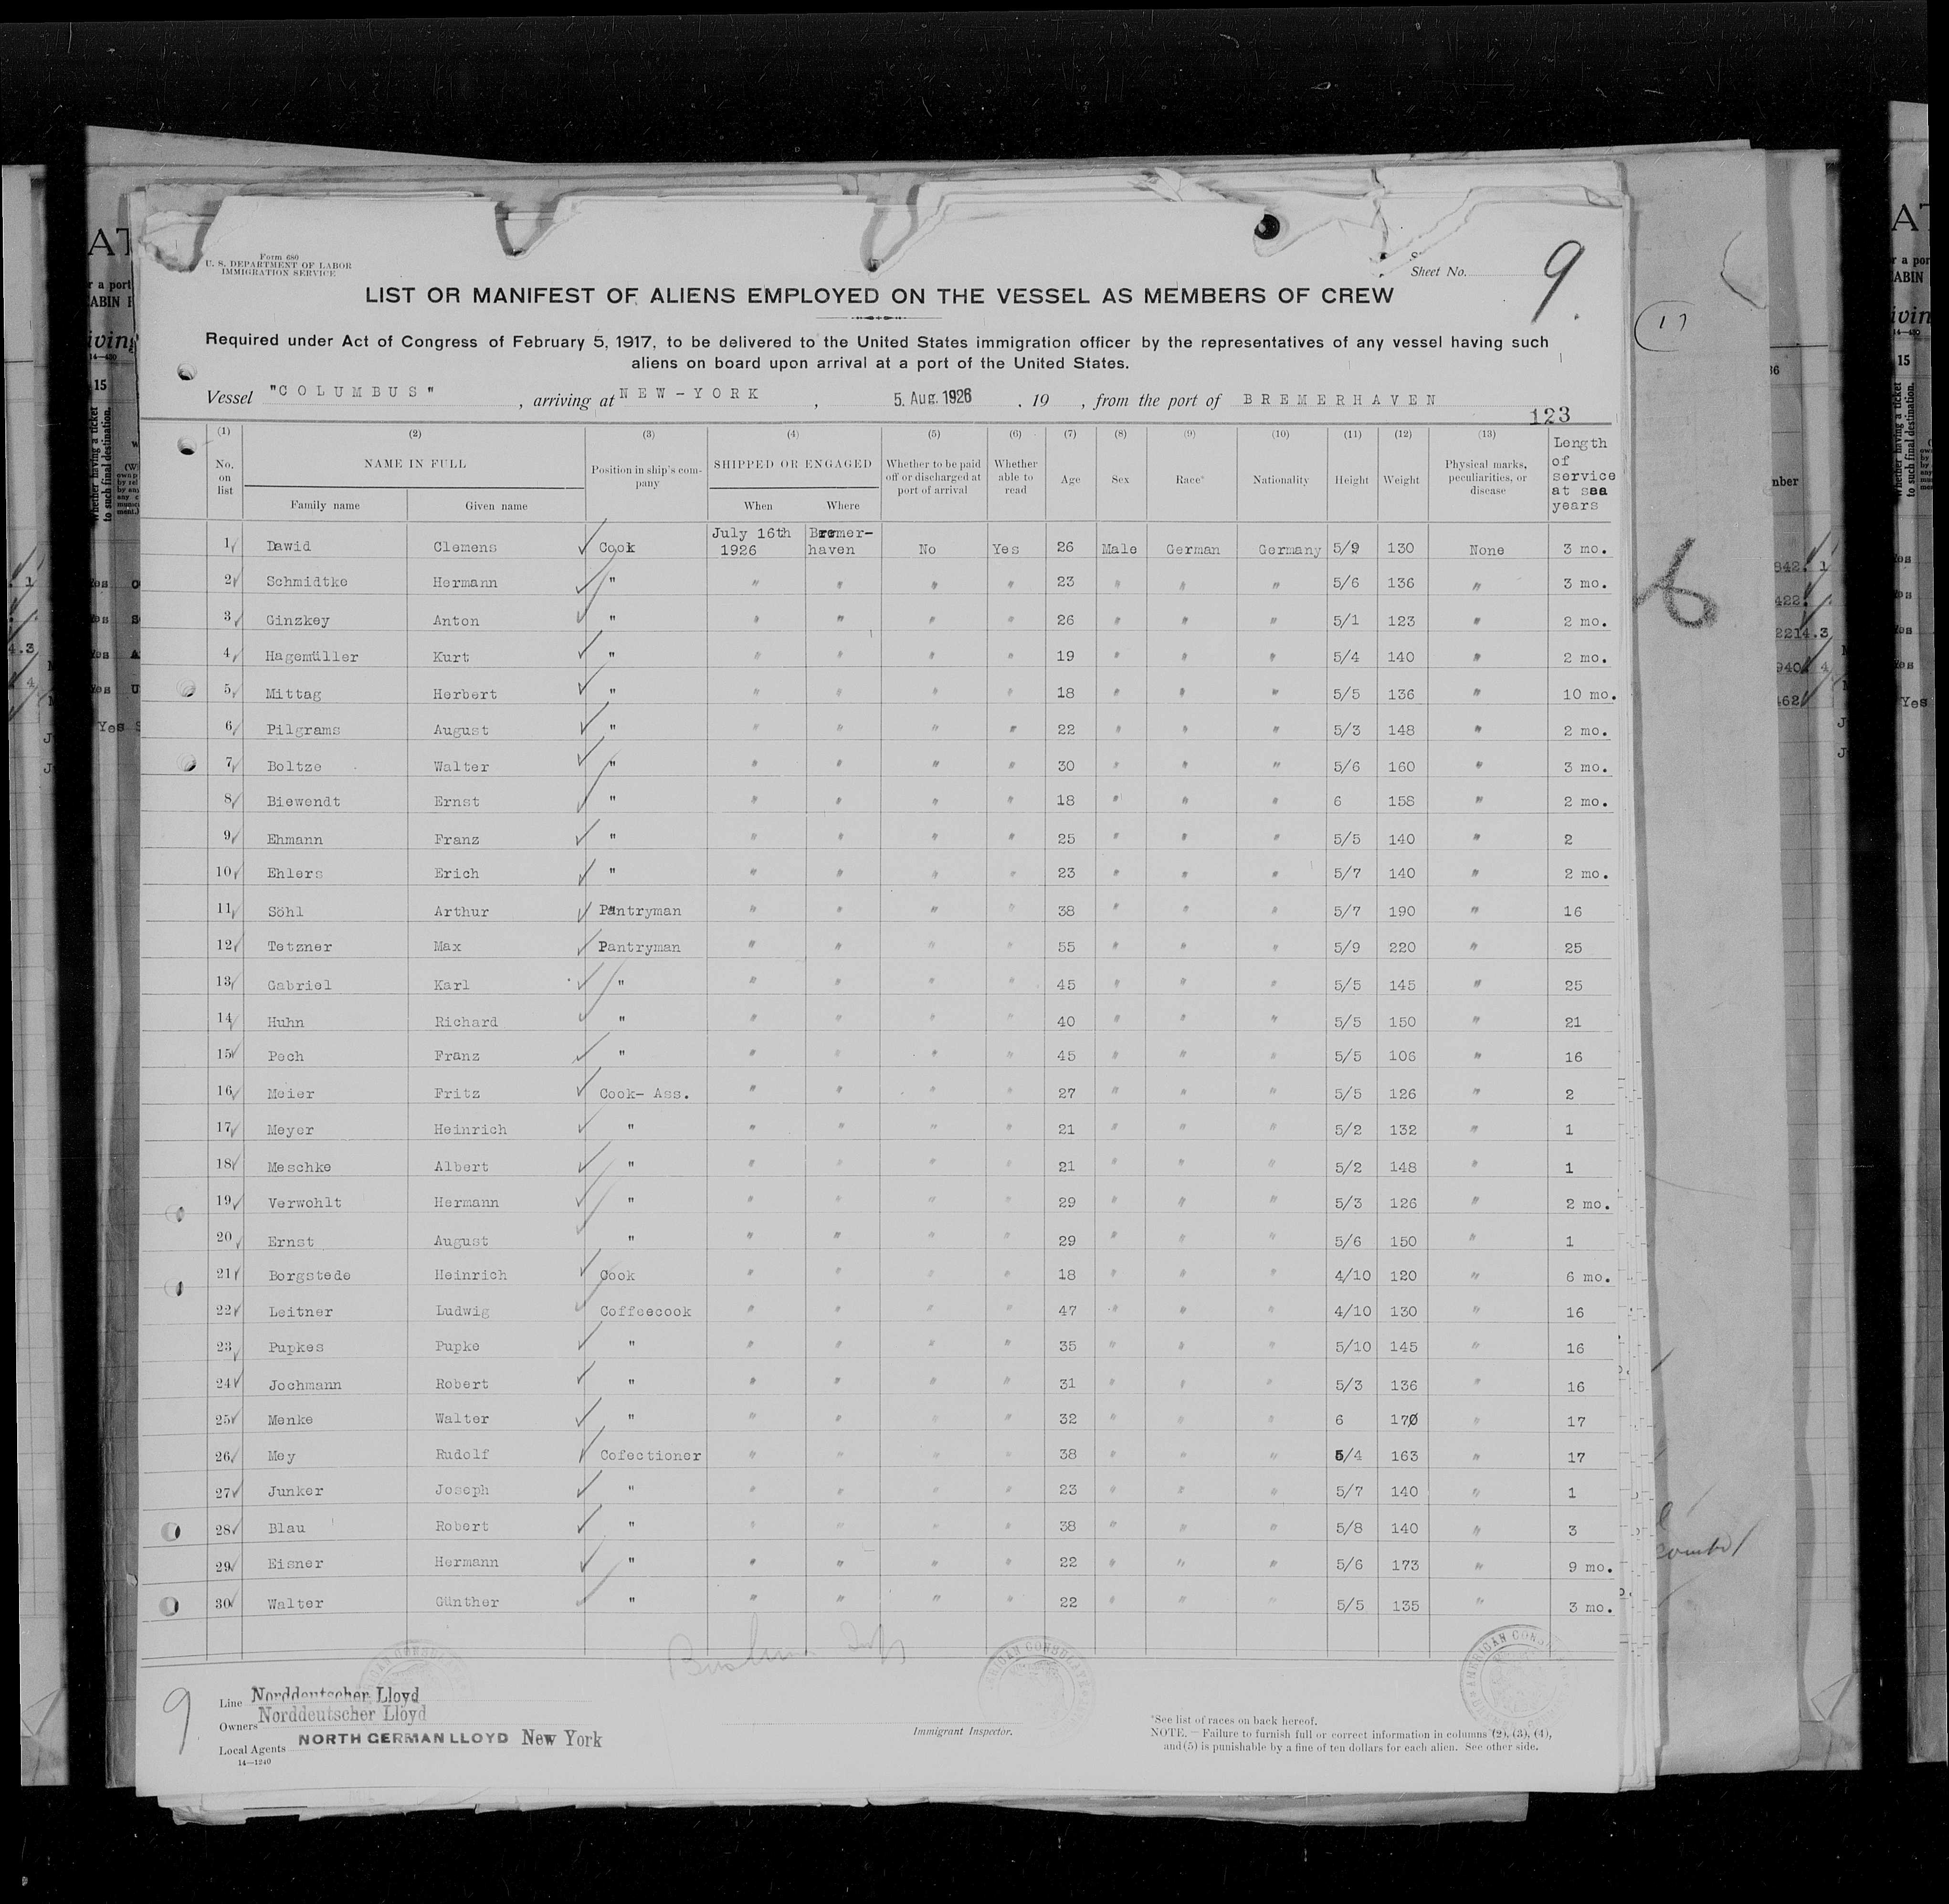 Form 680
U. S. DEPARTMENT OF LABOR
IMMIGRATION SERVICE
Sheet No. 9.
LIST OR MANIFEST OF ALIENS EMPLOYED ON THE VESSEL AS MEMBERS OF CREW
Required under Act of Congress of February 5, 1917, to be delivered to the United States immigration officer by the representatives of any vessel having such
aliens on board upon arrival at a port of the United States.
Vessel "COLUMBUS", arriving at NEW-YORK, 5. Aug. 1926, 19 , from the port of BREMERHAVEN
123
(1) (2) (3) (4) (5) (6) (7) (8) (9) (10) (11) (12) (13)
No. on list NAME IN FULL Family name Given name Position in ship's company SHIPPED OR ENGAGED When Where Whether to be paid off or discharged at port of arrival Whether able to read Age Sex Race* Nationality Height Weight Physical marks, peculiarities, or disease Length of service at sea years
1 Dawid Clemens Cook July 16th 1926 Bremerhaven No Yes 26 Male German Germany 5/9 130 None 3 mo.
2 Schmidtke Hermann " " " " " 23 " " " 5/6 136 " 3 mo.
3 Ginzkey Anton " " " " " 26 " " " 5/1 123 " 2 mo.
4 Hagemüller Kurt " " " " " 19 " " " 5/4 140 " 2 mo.
5 Mittag Herbert " " " " " 18 " " " 5/5 136 " 10 mo.
6 Pilgrams August " " " " " 22 " " " 5/3 148 " 2 mo.
7 Boltze Walter " " " " " 30 " " " 5/6 160 " 3 mo.
8 Biewendt Ernst " " " " " 18 " " " 6 158 " 2 mo.
9 Ehmann Franz " " " " " 25 " " " 5/5 140 " 2
10 Ehlers Erich " " " " " 23 " " " 5/7 140 " 2 mo.
11 Söhl Arthur Pantryman " " " " 38 " " " 5/7 190 " 16
12 Tetzner Max Pantryman " " " " 55 " " " 5/9 220 " 25
13 Gabriel Karl " " " " " 45 " " " 5/5 145 " 25
14 Huhn Richard " " " " " 40 " " " 5/5 150 " 21
15 Pech Franz " " " " " 45 " " " 5/5 106 " 16
16 Meier Fritz Cook- Ass. " " " " 27 " " " 5/5 126 " 2
17 Meyer Heinrich " " " " " 21 " " " 5/2 132 " 1
18 Meschke Albert " " " " " 21 " " " 5/2 148 " 1
19 Verwohlt Hermann " " " " " 29 " " " 5/3 126 " 2 mo.
20 Ernst August " " " " " 29 " " " 5/6 150 " 1
21 Borgstede Heinrich Cook " " " " 18 " " " 4/10 120 " 6 mo.
22 Leitner Ludwig Coffeecook " " " " 47 " " " 4/10 130 " 16
23 Pupkes Pupke " " " " " 35 " " " 5/10 145 " 16
24 Jochmann Robert " " " " " 31 " " " 5/3 136 " 16
25 Menke Walter " " " " " 32 " " " 6 170 " 17
26 Mey Rudolf Cofectioner " " " " 38 " " " 5/4 163 " 17
27 Junker Joseph " " " " " 23 " " " 5/7 140 " 1
28 Blau Robert " " " " " 38 " " " 5/8 140 " 3
29 Eisner Hermann " " " " " 22 " " " 5/6 173 " 9 mo.
30 Walter Günther " " " " " 22 " " " 5/5 135 " 3 mo.
9
Line Norddeutscher Lloyd
Owners Norddeutscher Lloyd
Local Agents NORTH GERMAN LLOYD New York
14—1240
Immigrant Inspector.
AMERICAN CONSULATE
*See list of races on back hereof.
NOTE. — Failure to furnish full or correct information in columns (2), (3), (4),
and (5) is punishable by a fine of ten dollars for each alien. See other side.